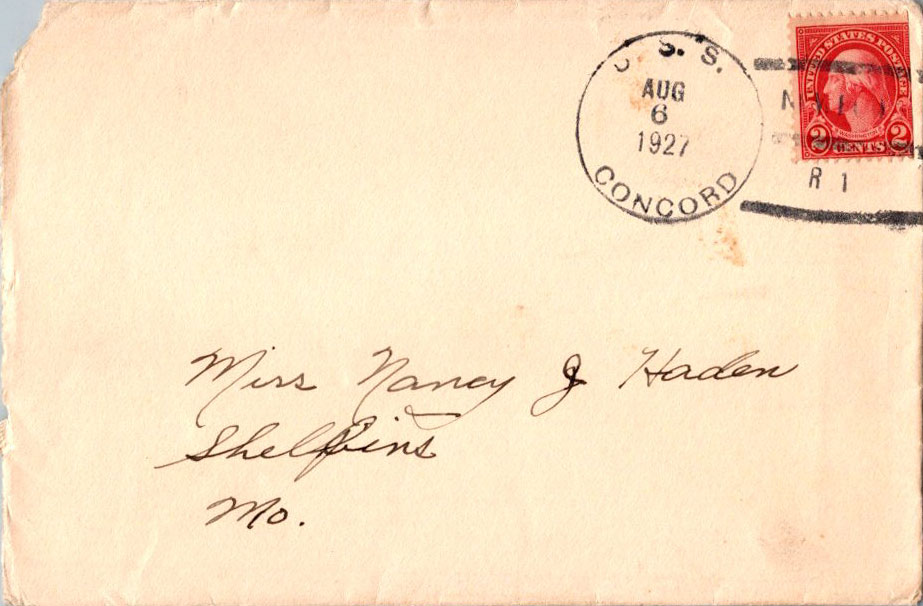 U. S. S.
AUG
6
1927
CONCORD
R I
UNITED STATES POSTAGE
WASHINGTON
2 CENTS 2
Miss Nancy J Haden
Shelbina
Mo.